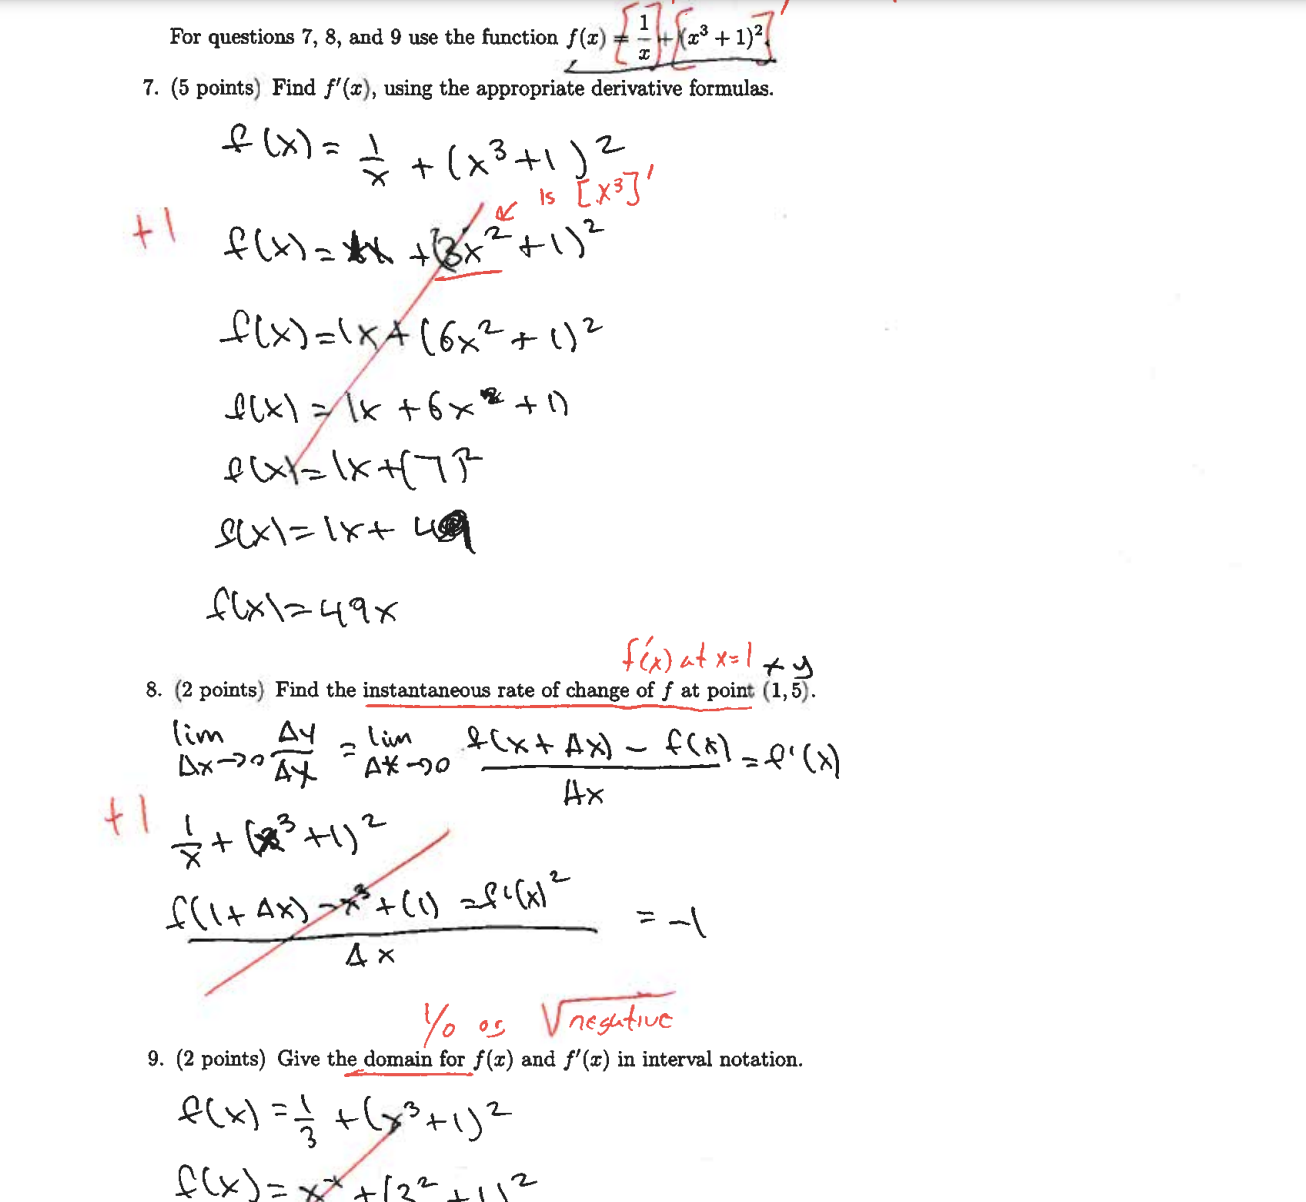 For questions 7, 8, and 9 use the function f(x) = [1/x]' + [(x³ + 1)²]'
7. (5 points) Find f′(x), using the appropriate derivative formulas.
f(x) = 1/x + (x³+1)²
is [x³]'
+1
f(x) = + (3x²+1)²
f(x)=1x+(6x²+1)²
f(x) = 1x +6x +1)
f(x)=1x+(7)²
f(x)=1x+ 49
f(x)=49x
f'(x) at x=1 x y
8. (2 points) Find the instantaneous rate of change of f at point (1, 5).
lim Δx→0 Δy/Δx = lim Δx→0 f(x+Δx) - f(x) / Δx = f'(x)
+1
1/x + (x³+1)²
f(1+Δx) - x³+(1) = f'(x)² / Δx = -1
1/0 or √negative
9. (2 points) Give the domain for f(x) and f′(x) in interval notation.
f(x) = 1/3 + (x³+1)²
f(x)= +(3² +1)²